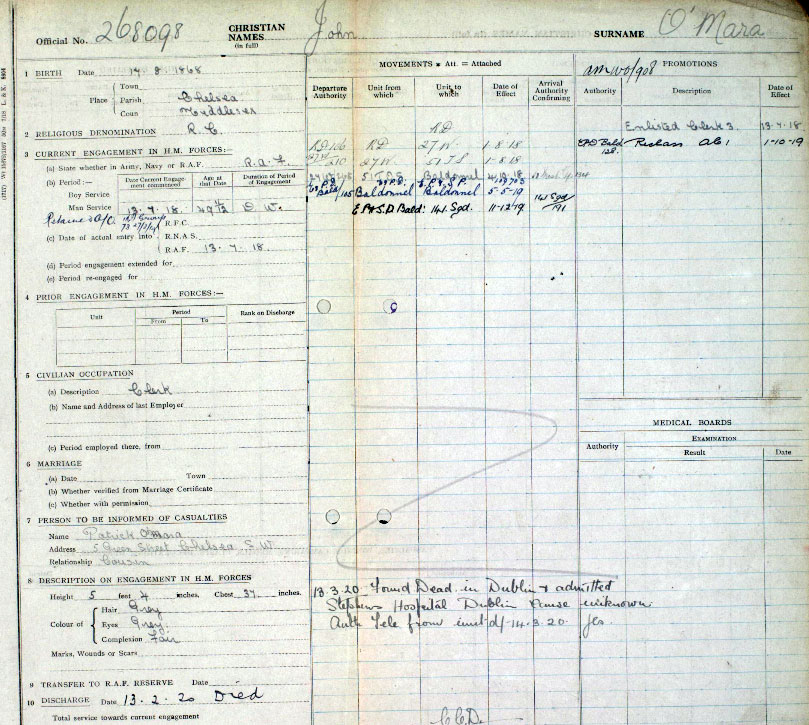 Official No. 268098 CHRISTIAN NAMES (in full) John SURNAME O'Mara
1 BIRTH Date 14.8.1868
Town
Place Parish Chelsea
Coun Middlesex
2 RELIGIOUS DENOMINATION R.C.
3 CURRENT ENGAGEMENT IN H.M. FORCES:—
(a) State whether in Army, Navy or R.A.F. R.a.F
(b) Period:— Date Current Engagement commenced Age at that Date Duration of Period of Engagement
Boy Service
Man Service 13.7.18. D.W.
R.F.C.
(c) Date of actual entry into R.N.A.S.
R.A.F. 13.7.18.
(d) Period engagement extended for
(e) Period re-engaged for
4 PRIOR ENGAGEMENT IN H.M. FORCES:—
Unit Period Rank on Discharge
From To
5 CIVILIAN OCCUPATION
(a) Description Clerk
(b) Name and Address of last Employer
(c) Period employed there, from
6 MARRIAGE
(a) Date Town
(b) Whether verified from Marriage Certificate
(c) Whether with permission
7 PERSON TO BE INFORMED OF CASUALTIES
Name Patrick O'Mara
Address Street Chelsea S.W.
Relationship Cousin
8 DESCRIPTION ON ENGAGEMENT IN H.M. FORCES
Height 5 feet 4 inches. Chest 37 inches.
Hair Grey
Colour of Eyes Grey
Complexion Fair
Marks, Wounds or Scars
9 TRANSFER TO R.A.F. RESERVE Date
10 DISCHARGE Date 13.2.20 Died
Total service towards current engagement
MOVEMENTS * Att. = Attached
Departure Authority Unit from which Unit to which Date of Effect Arrival Authority Confirming
RD
RD 106 RD 27 W 1-8-18
210 27 W 51 T.S 1-8-18
51 T.D.S Baldonnel 4.10.18
Baldonnel Baldonnel 5-5-19
E.P.&S.D Bald: 141. Sqd. 11-12-19 141 Sqd 191
13.3.20 Found Dead in Dublin & admitted
Stephens Hospital Dublin cause unknown
Auth Tele from unit d/-14.3.20.
C.C.D.
amwo/908 PROMOTIONS
Authority Description Date of Effect
Enlisted Clerk 3. 13-7-18
Bald 128. Reclass AC1 1-10-19
MEDICAL BOARDS
EXAMINATION
Authority Result Date